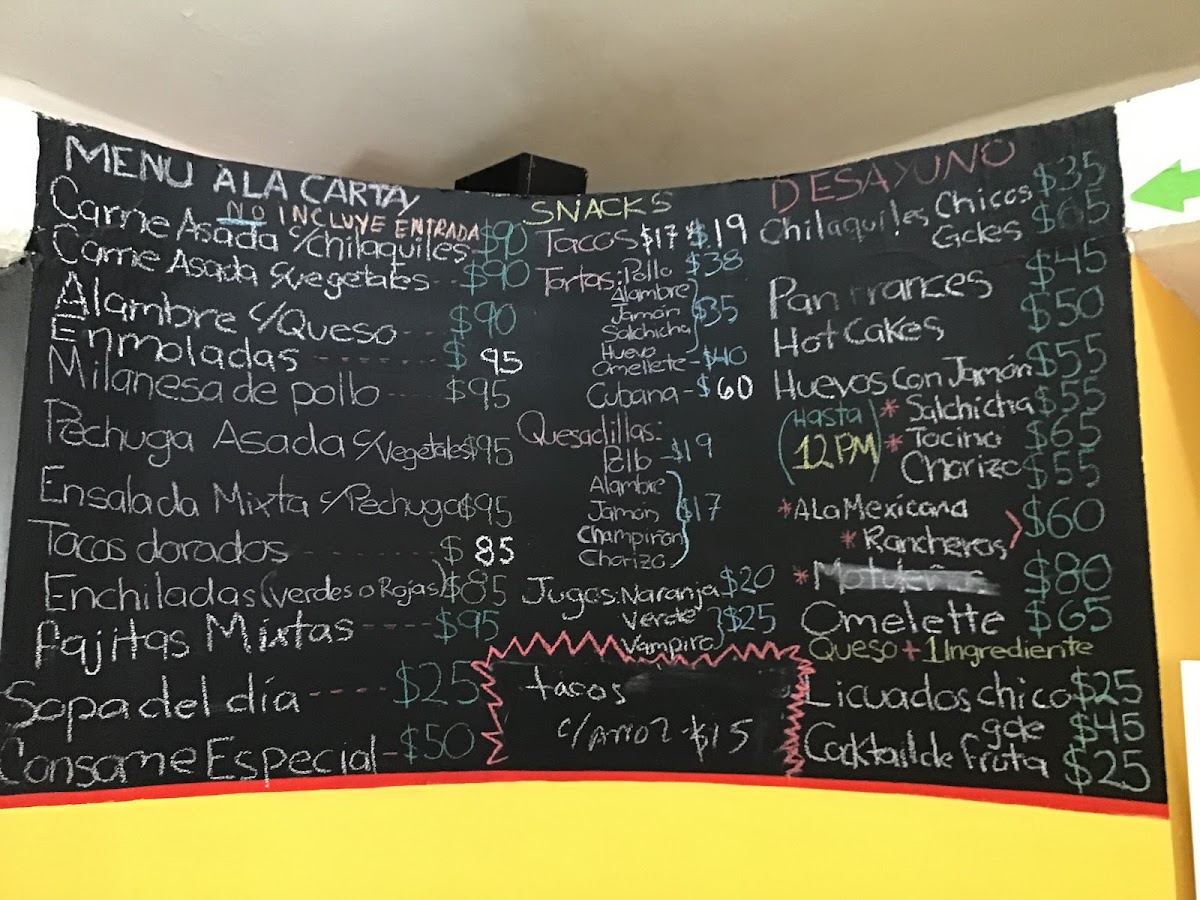 MENU A LA CARTA
NO INCLUYE ENTRADA
Carne Asada c/chilaquiles - $90
Carne Asada c/vegetales -- $90
Alambre c/Queso --- $90
Enmoladas -------- $95
Milanesa de pollo ---- $95
Pechuga Asada c/vegetales $95
Ensalada Mixta c/Pechuga $95
Tacos dorados --------- $85
Enchiladas (verdes o Rojas) $85
Fajitas Mixtas ---- $95
Sopa del día ---- $25
Consome Especial - $50
SNACKS
Tacos $17 $19
Tortas: Pollo $38
Alambre
Jamón $35
Salchicha
Huevo
Omellete - $40
Cubana - $60
Quesadillas:
Pollo - $19
Alambre
Jamon $17
Champiñon
Chorizo
Jugos: Naranja $20
Verde $25
Vampiro
tacos
c/arroz - $15
DESAYUNO
Chilaquiles Chicos $35
Gdes $65
Pan Frances $45
Hot Cakes $50
Huevos Con Jamón $55
(HASTA 12PM)
* Salchicha $55
* Tocino $65
Chorizo $55
* A La Mexicana
* Rancheros $60
* Motuleños $80
Omelette $65
Queso + 1 Ingrediente
Licuados chico $25
gde $45
Cocktail de fruta $25